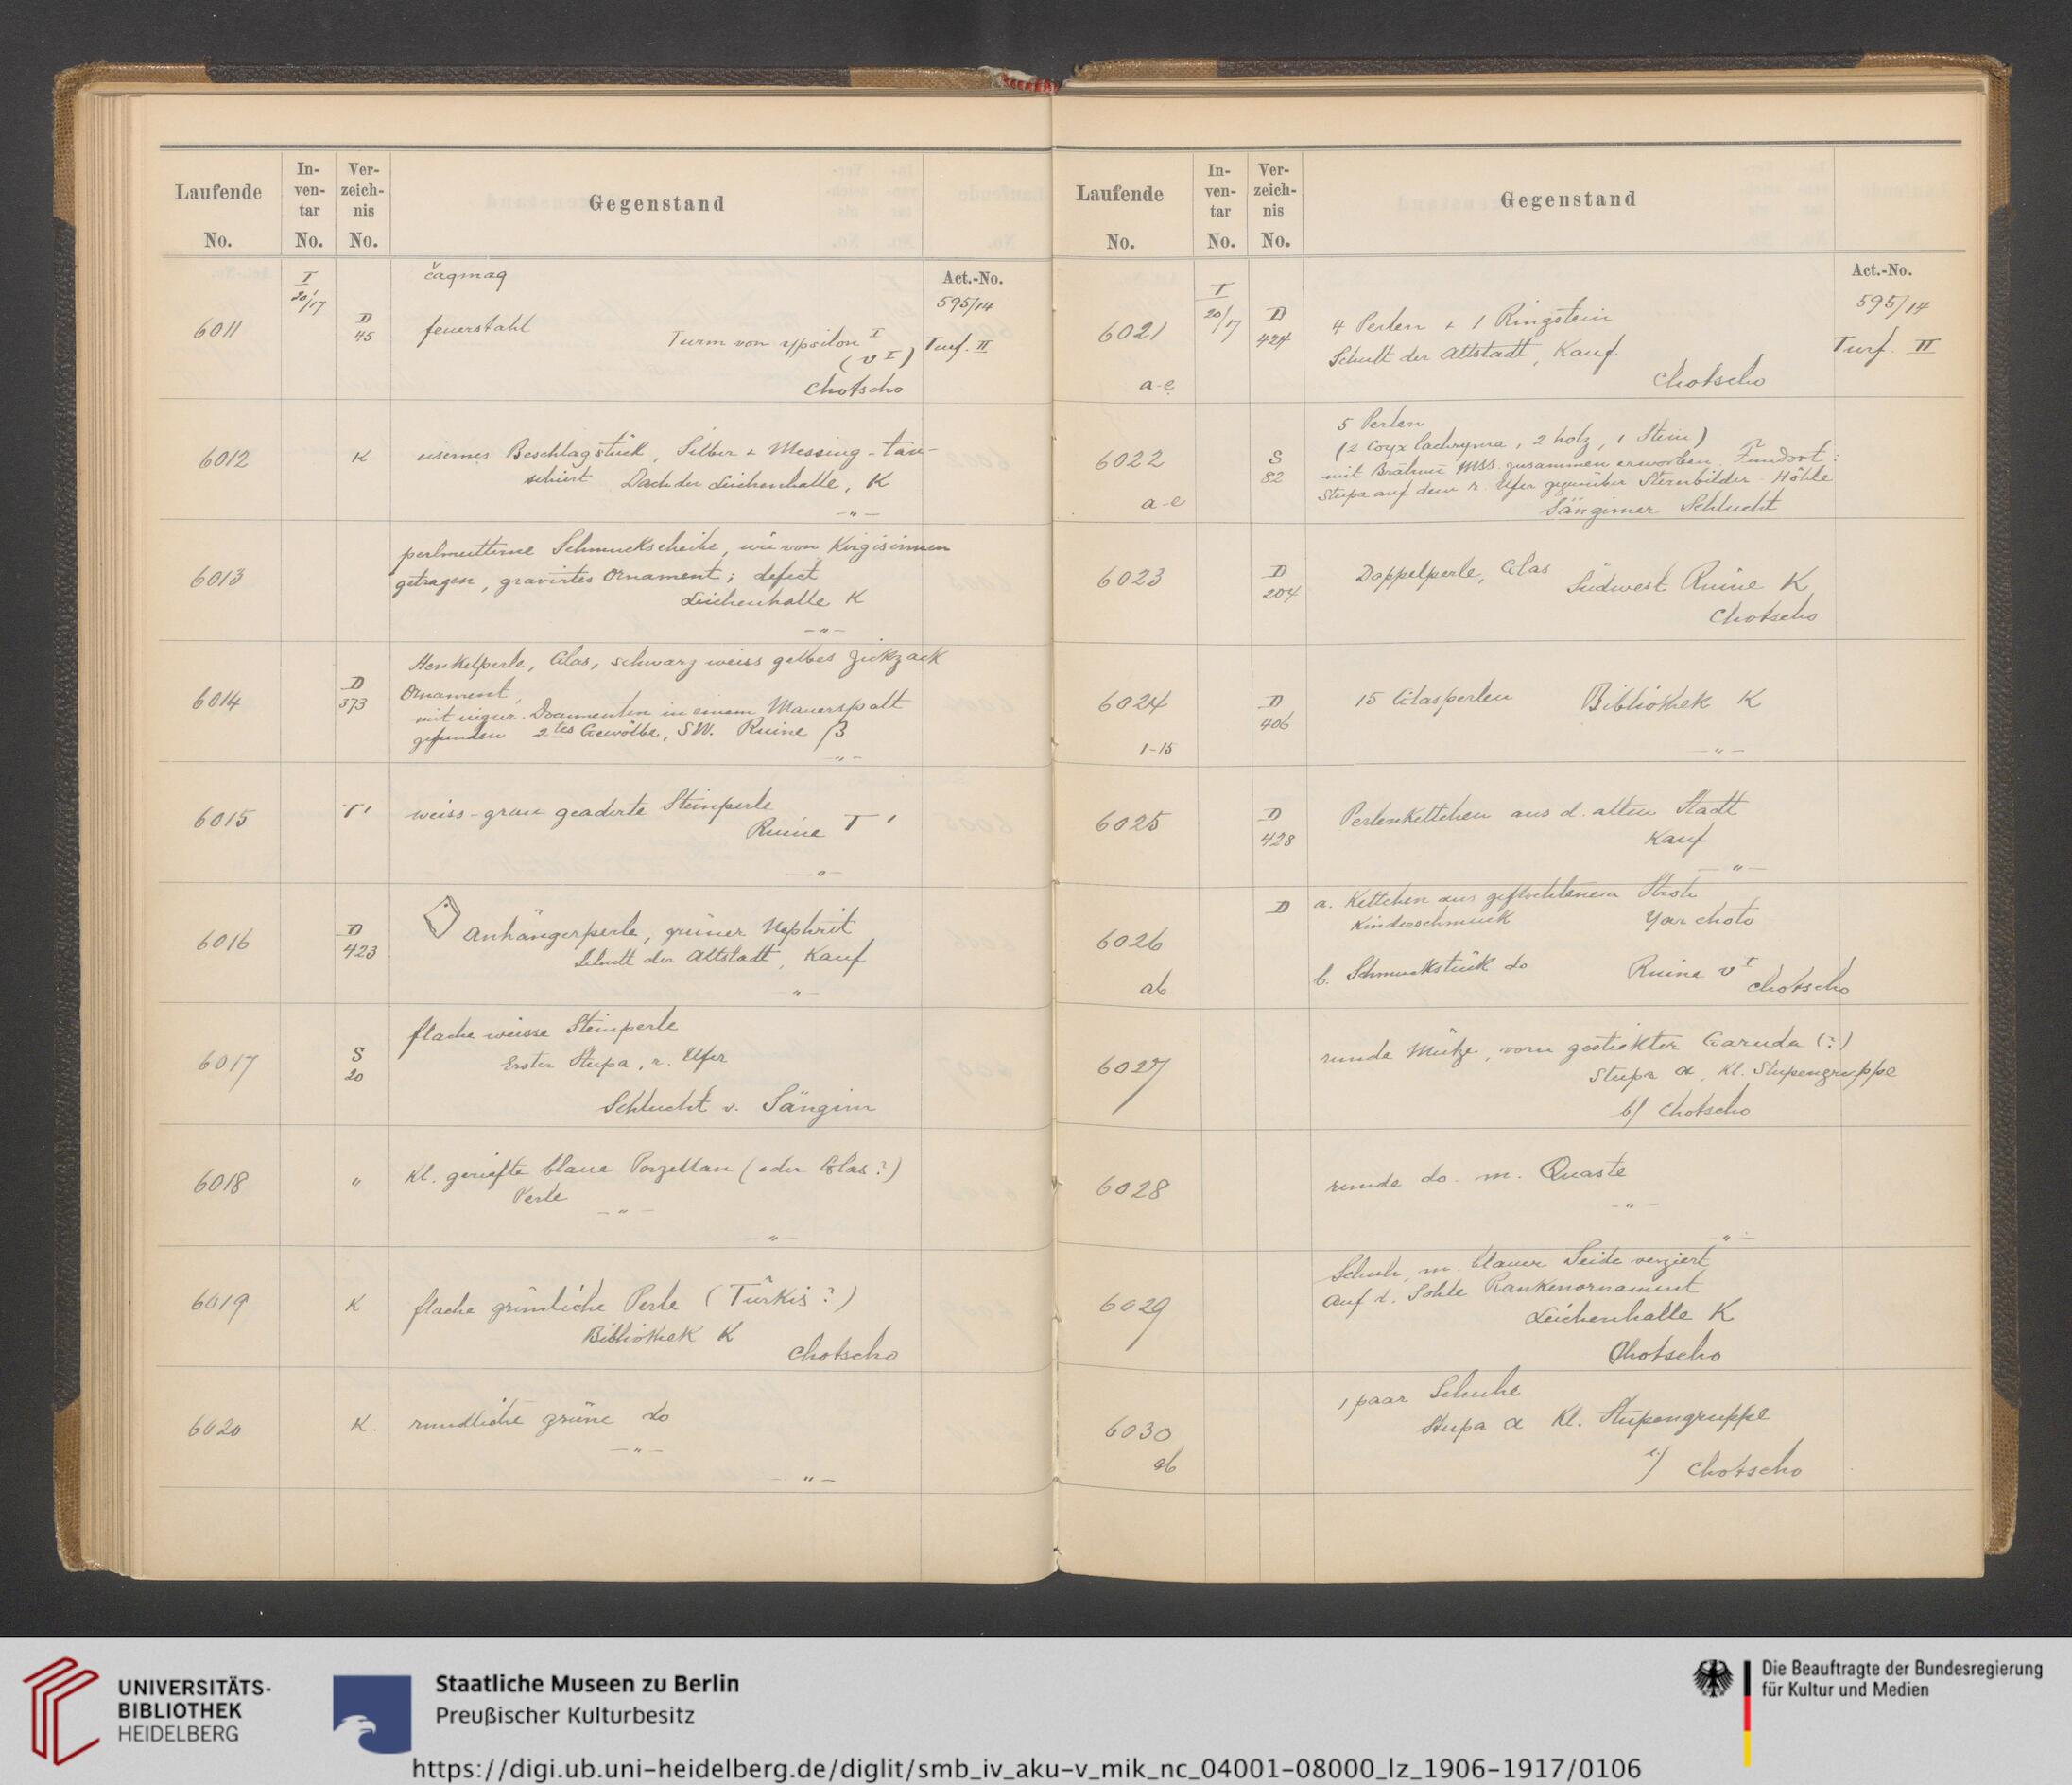 Laufende No.
In-ven-tar No.
Ver-zeich-nis No.
Gegenstand
Act.-No.
I 20/17
595/14
čaqmaq
6011
D 45
feuerstahl
Turm von ypsilon I
(v I)
Turf. II
Chotscho
6012
K
eisernes Beschlagstück, Silber + Messing-tau-
schiert Dach der Leichenhalle, K
— " —
6013
perlmutterne Schmuckscheibe, wie von Kirgisinnen
getragen, gravirtes Ornament; defect
Leichenhalle K
— " —
6014
D 573
Henkelperle, Glas, schwarz weiss gelbes Zickzack
Ornament,
mit uigur. Documenten in einem Mauerspalt
gefunden 2tes Gewölbe, SW. Ruine β
— " —
6015
T'
weiss-grau geaderte Steinperle
Ruine T'
— " —
6016
D 423
Anhängerperle, grüner Nephrit
Schutt der Altstadt, Kauf
— " —
6017
S 20
flache weisse Steinperle
Erster Stupa, r. Ufer
Schlucht v. Sängim
6018
"
Kl. geriefte blaue Porzellan (oder Glas?)
Perle
— " —
— " —
6019
K
flache grünliche Perle (Türkis?)
Bibliothek K
Chotscho
6020
K.
rundliche grüne do
— " —
— " —
Laufende No.
In-ven-tar No.
Ver-zeich-nis No.
Gegenstand
Act.-No.
I 20/17
595/14
6021
a-e
D 424
4 Perlen + 1 Ringstein
Schutt der Altstadt, Kauf
Turf. II
Chotscho
6022
a-e
S 82
5 Perlen
(2 Coyx lachryma, 2 holz, 1 Stein)
mit Brahmi MSS. zusammen erworben Fundort:
Stupa auf dem r. Ufer gegenüber Sternbilder-Höhle
Sängimer Schlucht
6023
D 204
Doppelperle, Glas
Südwest Ruine K
Chotscho
6024
1-15
D 406
15 Glasperlen Bibliothek K
— " —
6025
D 428
Perlenkettchen aus d. alten Stadt
Kauf
— " —
6026
ab
D
a. Kettchen aus geflochtenem Stroh
Kinderschmuck Yar choto
b. Schmuckstück do Ruine v I
Chotscho
6027
runde Mütze, vorn gestickter Garuda (?)
Stupa α, Kl. Stupengruppe
b/ Chotscho
6028
runde do. m. Quaste
— " —
— " —
6029
Schuh, m. blauer Seide verziert
Auf d. Sohle Rankenornament
Leichenhalle K
Chotscho
6030
ab
1 paar Schuhe
Stupa α Kl. Stupengruppe
Chotscho
UNIVERSITÄTS-
BIBLIOTHEK
HEIDELBERG
Staatliche Museen zu Berlin
Preußischer Kulturbesitz
Die Beauftragte der Bundesregierung
für Kultur und Medien
https://digi.ub.uni-heidelberg.de/diglit/smb_iv_aku-v_mik_nc_04001-08000_lz_1906-1917/0106